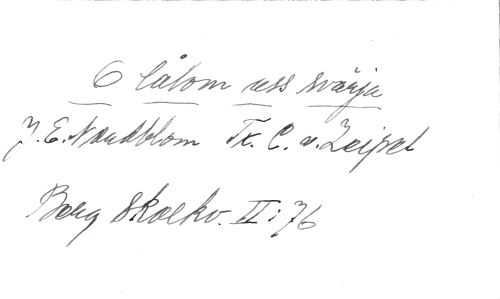 O låtom oss svärja
J. E. Nordblom Tx. C. v. Zeipel
Berg Skolkv. II: 76